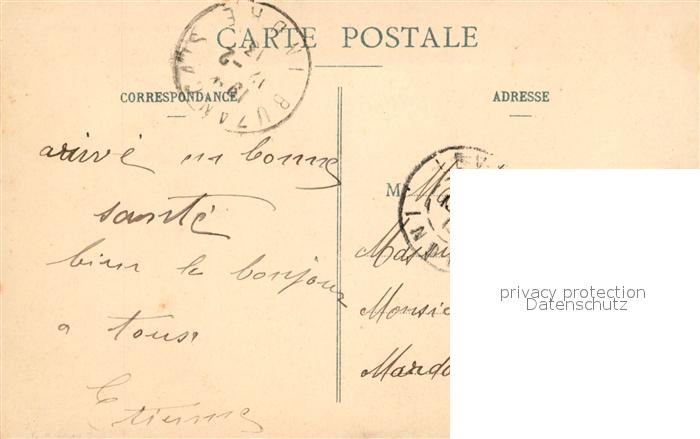 CARTE POSTALE
CORRESPONDANCE
ADRESSE
arrivé en bonne
santé
bien le bonjour
a tous
Etienne
M
Monsie
Mardo
privacy protection
Datenschutz